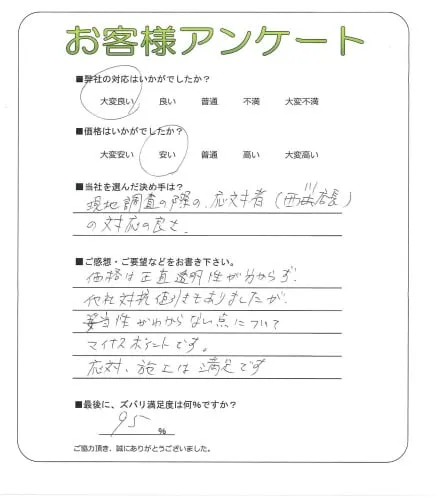 お客様アンケート
■弊社の対応はいかがでしたか？
大変良い 良い 普通 不満 大変不満
■価格はいかがでしたか？
大変安い 安い 普通 高い 大変高い
■当社を選んだ決め手は？
現地調査の際の、応対者（西川店長）
の対応の良さ、
■ご感想・ご要望などをお書き下さい。
価格は正直透明性が分からず、
他社対抗値引きもありましたが、
妥当性がわからない点について
マイナスポイントです。
応対、施工は満足です
■最後に、ズバリ満足度は何％ですか？
95 ％
ご協力頂き、誠にありがとうございました。